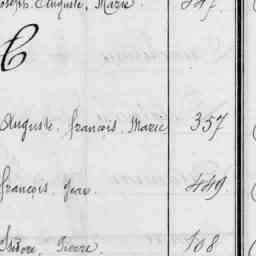 Joseph Auguste, Marie.
C
Auguste, françois, Marie 357
françois, Jean. 449.
Isidore, Pierre. 108